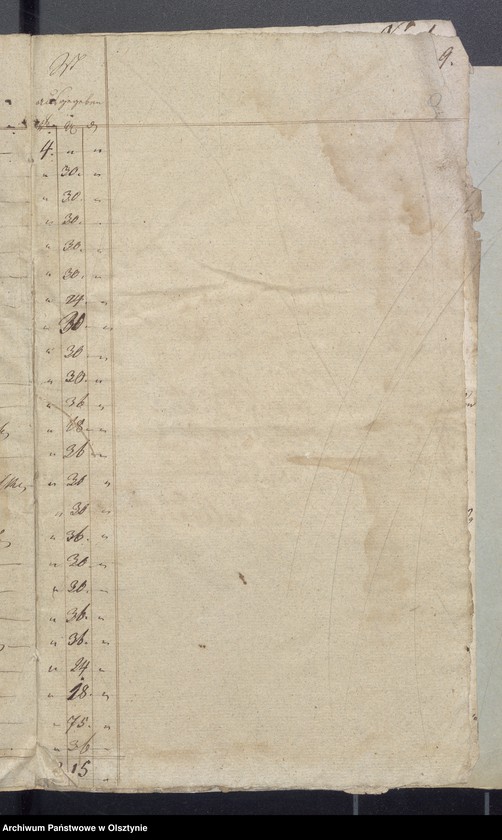 9.
Ist
ausgegeben
4. " "
" 30. "
" 30. "
" 30. "
" 30. "
" 30. "
" 24. "
" 30. "
" 30. "
" 30. "
" 36. "
" 18. "
" 36 "
" "
" "
" 36. "
" 30. "
" 30. "
" 36. "
" 36. "
" 24 "
" 18. "
" 75. "
" 36 "
15 "
Archiwum Państwowe w Olsztynie